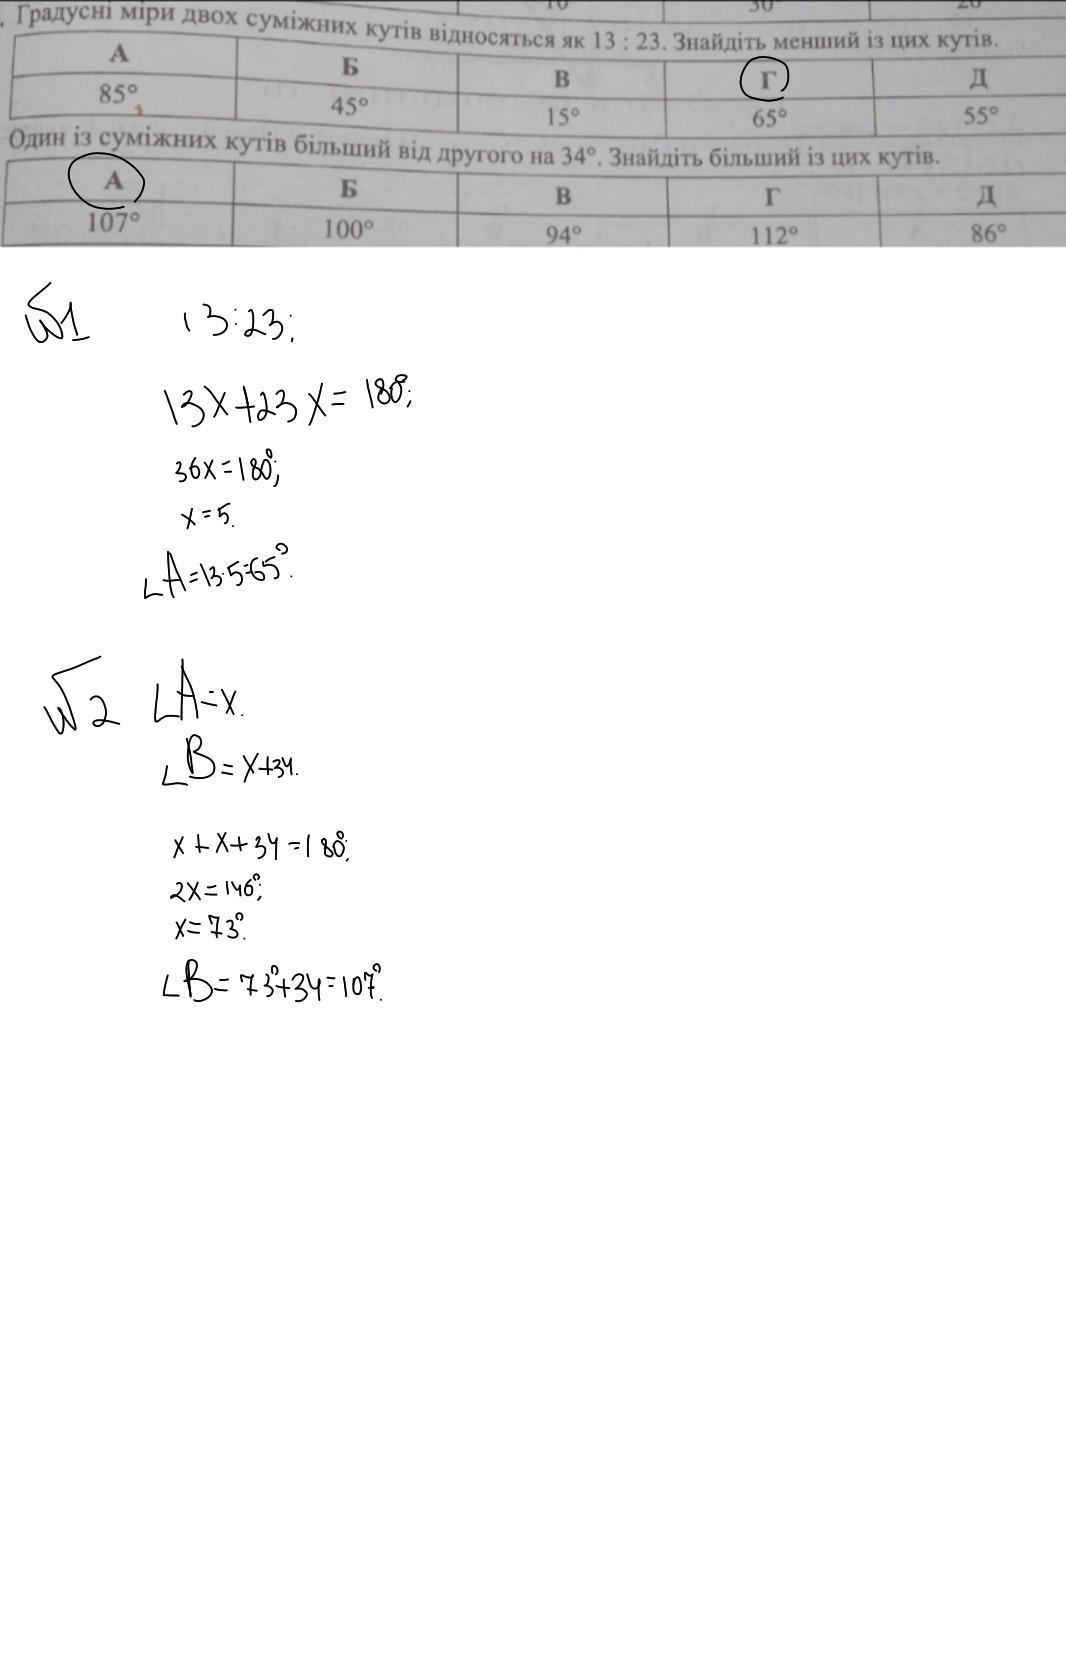 10 30° 20
. Градусні міри двох суміжних кутів відносяться як 13 : 23. Знайдіть менший із цих кутів.
А Б В Г Д
85° 45° 15° 65° 55°
Один із суміжних кутів більший від другого на 34°. Знайдіть більший із цих кутів.
А Б В Г Д
107° 100° 94° 112° 86°
№1 13:23;
13x+23x= 180°;
36x=180°;
x=5.
∠A=13·5=65°.
№2 ∠A=x.
∠B=x+34.
x+x+34=180°;
2x=146°;
x=73°.
∠B=73°+34=107°.